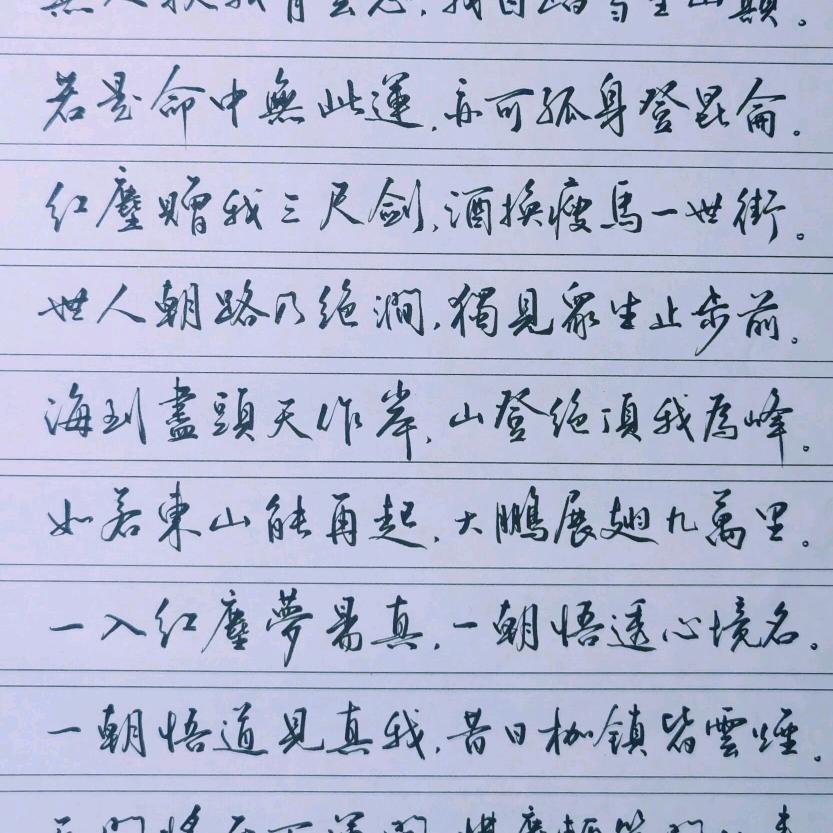 無人扶我青雲志，我自踏雪至山巔。
若是命中無此運，亦可孤身登昆侖。
红塵赠我三尺劍，酒换瘦馬一世街。
世人朝路乃绝澗，獨見眾生止步前。
海到盡頭天作岸，山登绝頂我為峰。
如若東山能再起，大鵬展翅九萬里。
一入红塵夢易真，一朝悟透心境名。
一朝悟道見真我，昔日枷鎖皆雲煙。